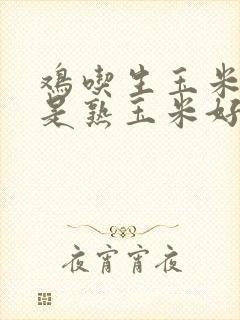 鸡喫生玉米
是熟玉米好
夜宵宵夜